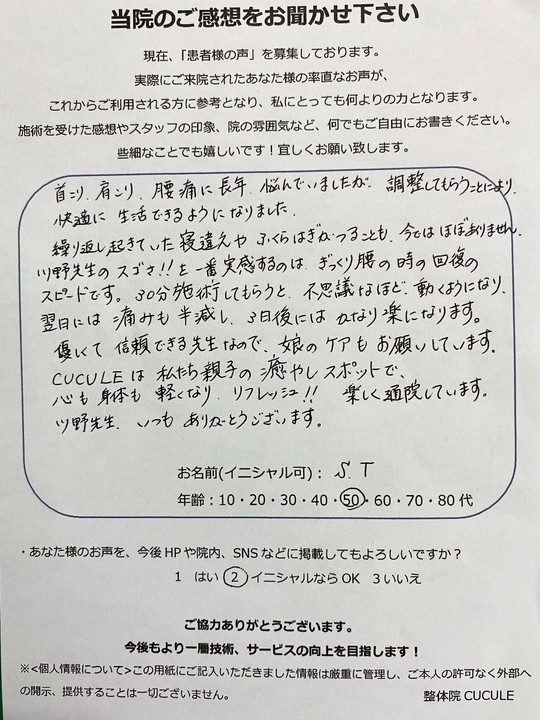 当院のご感想をお聞かせ下さい
現在、「患者様の声」を募集しております。
実際にご来院されたあなた様の率直なお声が、
これからご利用される方に参考となり、私にとっても何よりの力となります。
施術を受けた感想やスタッフの印象、院の雰囲気など、何でもご自由にお書きください。
些細なことでも嬉しいです！宜しくお願い致します。
首こり、肩こり、腰痛に長年、悩んでいましたが、調整してもらうことにより、
快適に生活できるようになりました。
繰り返し起きていた寝違えや ふくらはぎがつることも、今ではほぼありません。
川野先生のスゴさ!!を一番実感するのは、ぎっくり腰の時の回復の
スピードです。30分施術してもらうと、不思議なほど、動くようになり、
翌日には 痛みも半減し、3日後には かなり楽になります。
優しくて 信頼できる先生なので、娘のケアもお願いしています。
CUCULEは 私たち親子の癒やしスポットで、
心も身体も 軽くなり、リフレッシュ!! 楽しく通院しています。
川野先生、いつも ありがとうございます。
お名前(イニシャル可)： S.T
年齢：10・20・30・40・50・60・70・80代
・あなた様のお声を、今後HPや院内、SNSなどに掲載してもよろしいですか？
1 はい 2 イニシャルならOK 3 いいえ
ご協力ありがとうございます。
今後もより一層技術、サービスの向上を目指します！
※<個人情報について>この用紙にご記入いただきました情報は厳重に管理し、ご本人の許可なく外部へ
の開示、提供することは一切ございません。 整体院 CUCULE